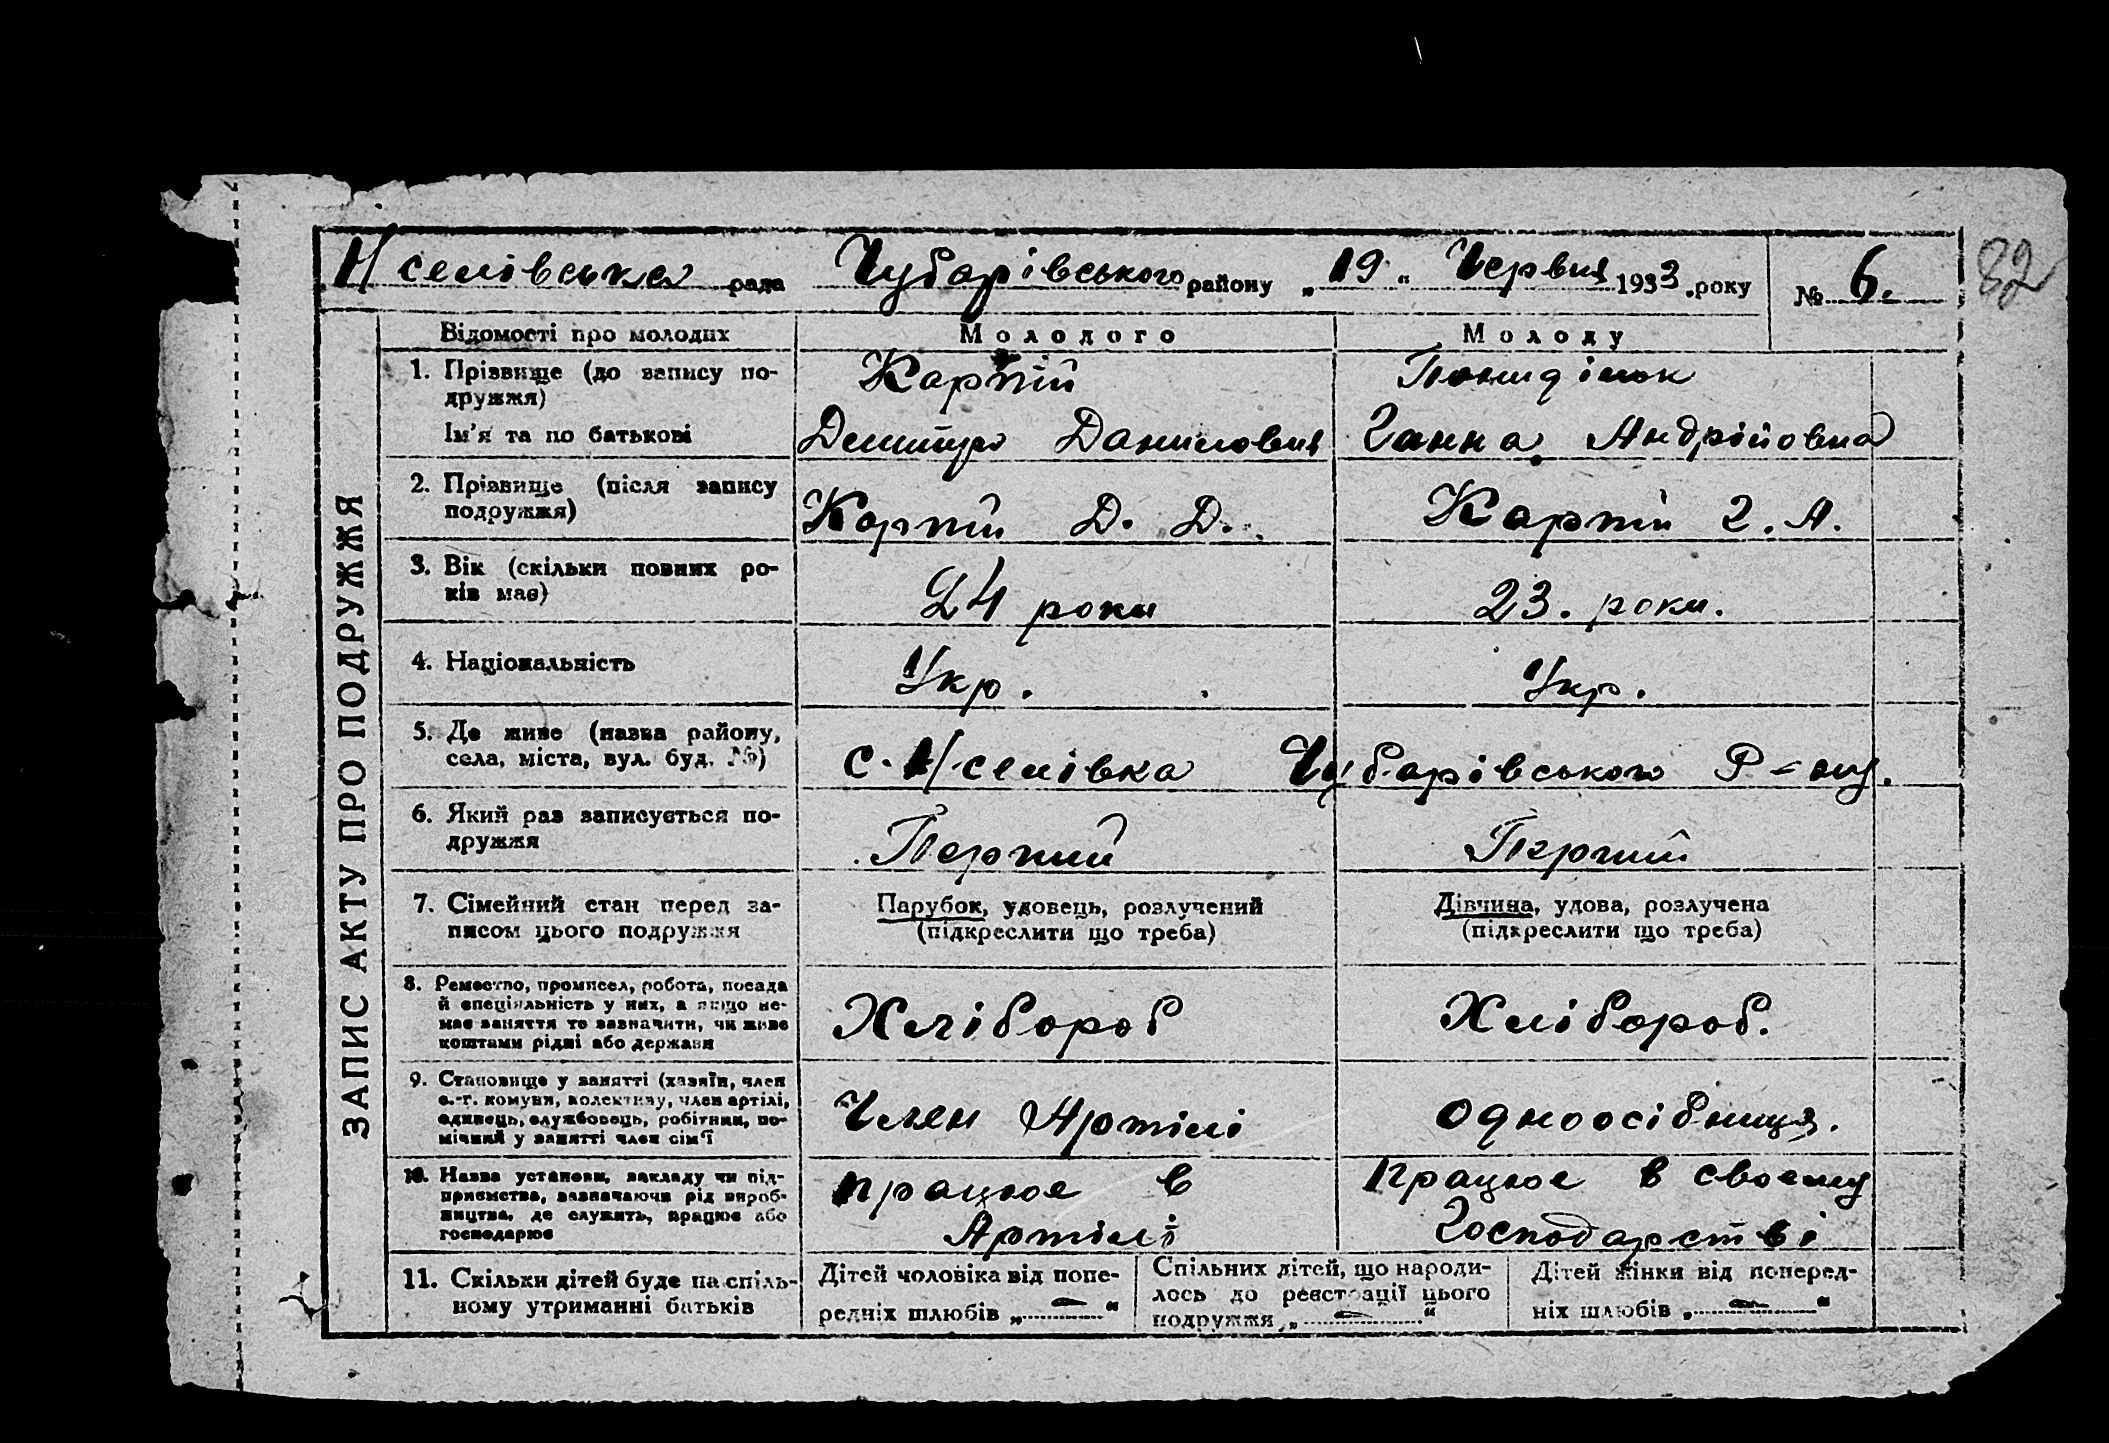 Н/селівська рада Чубарівського району „19“ Червня 1933 року № 6.
32
ЗАПИС АКТУ ПРО ПОДРУЖЖЯ
Відомості про молодих
Молодого
Молоду
1. Прізвище (до запису по-
дружжя)
Карпій
Ім'я та по батькові
Дмитро Данилович
Ганна Андрійовна
2. Прізвище (після запису
подружжя)
Карпій Д. Д.
Карпій Г. А.
3. Вік (скільки повних ро-
ків має)
24 роки
23. роки.
4. Національність
Укр.
Укр.
5. Де живе (назва району,
села, міста, вул. буд. №)
с. Н/селівка Чубарівського Р-ну.
6. Який раз записується по-
дружжя
Перший
Перший
7. Сімейний стан перед за-
писом цього подружжя
Парубок, удовець, розлучений
(підкреслити що треба)
Дівчина, удова, розлучена
(підкреслити що треба)
8. Ремество, промисел, робота, посада
й спеціяльність у них, а якщо не-
має заняття то зазначити, чи живе
коштами рідні або держави
Хлібороб
Хлібороб.
9. Становище у занятті (хазяїн, член
с.-г. комуни, колективу, член артілі,
одинець, службовець, робітник, по-
мічний у занятті член сім'ї
Член Артілі
одноосібниця.
10. Назва установи, закладу чи під-
приємства, зазначаючи рід вироб-
ництва, де служить, працює або
господарює
працює в
Артілі
працює в своєму
Господарстві
11. Скільки дітей буде на спіль-
ному утриманні батьків
Дітей чоловіка від попе-
редніх шлюбів „ — “
Спільних дітей, що народи-
лось до реєстрації цього
подружжя „ — “
Дітей жінки від поперед-
ніх шлюбів „ — “